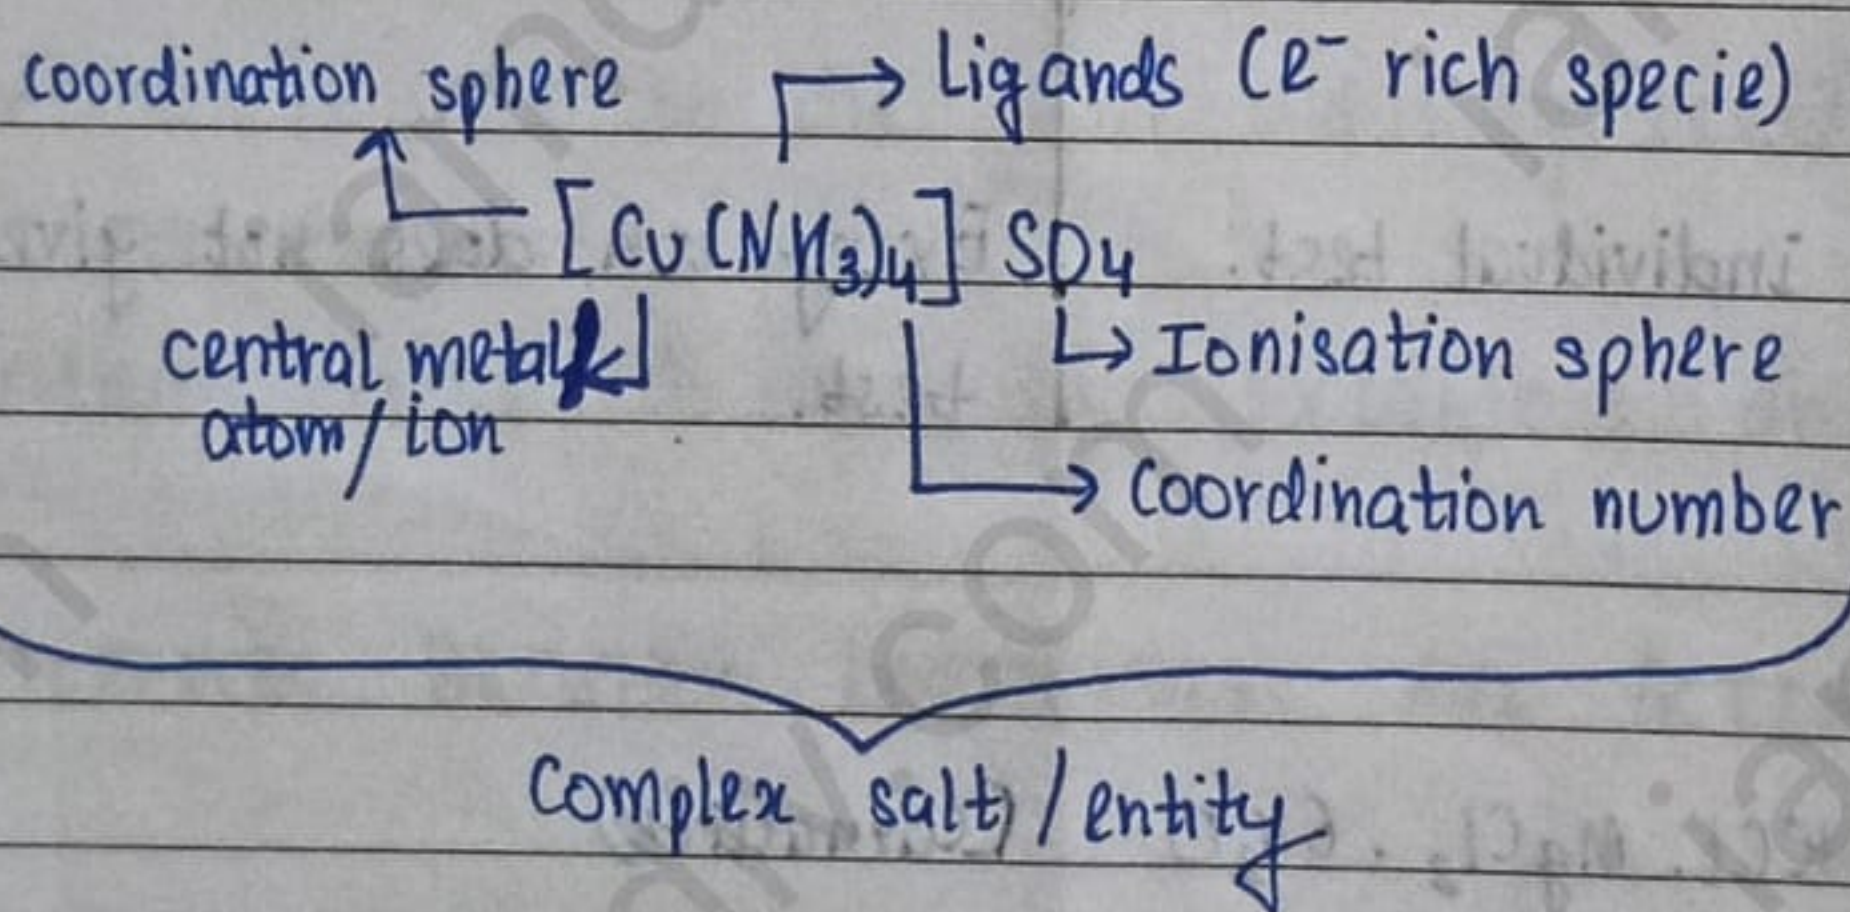 coordination sphere
Ligands (e⁻ rich specie)
[Cu(NH₃)₄] SO₄
central metal
atom/ion
Ionisation sphere
Coordination number
Complex salt/entity